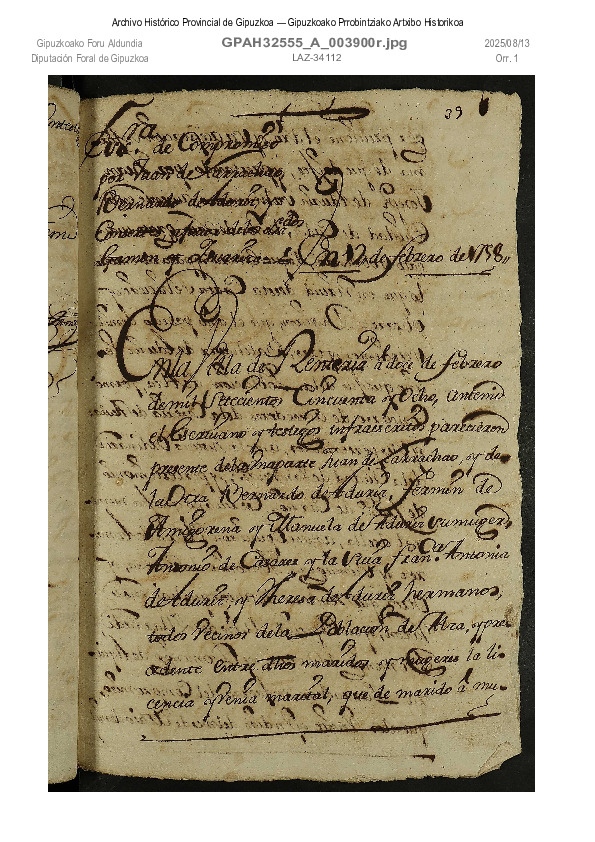 Archivo Histórico Provincial de Gipuzkoa — Gipuzkoako Prrobintziako Artxibo Historikoa
Gipuzkoako Foru Aldundia
Diputación Foral de Gipuzkoa
GPAH32555_A_003900r.jpg
LAZ-34112
2025/08/13
Orr. 1
39
Ess.ra de Compromiso
por Juan de Larrachao,
Bernardo de Aduriz,
En 12 de febrero de 1758,,
En la Villa de Renteria a doze de febrero
de mil Setecientos Cincuenta y Ocho, ante mi
el Escrivano y testigos infraescritos parecieron
presente de la una parte Juan de Larrachao, y de
la Otra Bernardo de Aduriz, fermin de
Amigorena y Manuela de Aduriz su muger,
Antonio de Casares y la Viuda fran.ca Antonia
de Aduriz, y Theresa de Aduriz hermanos,
todos Vecinos de la Poblacion de Alza, y pre
cedente entre dhos maridos y mugeres la li-
cencia y venia marital, que de marido à mu-